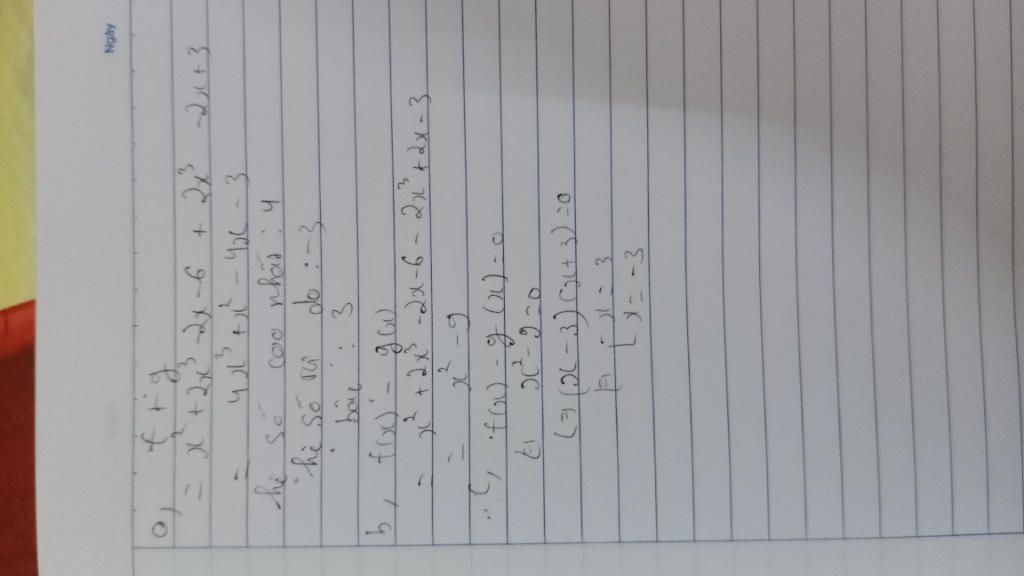 Ngày
a, f + g
= x² + 2x³ - 2x - 6 + 2x³ - 2x + 3
= 4x³ + x² - 4x - 3
hệ số cao nhất : 4
hệ số tự do : -3
bậc : 3
b, f(x) - g(x)
= x² + 2x³ - 2x - 6 - 2x³ + 2x - 3
= x² - 9
c, f(x) - g(x) = 0
⇔ x² - 9 = 0
⇔ (x - 3)(x + 3) = 0
⇔ [ x = 3
[ x = -3